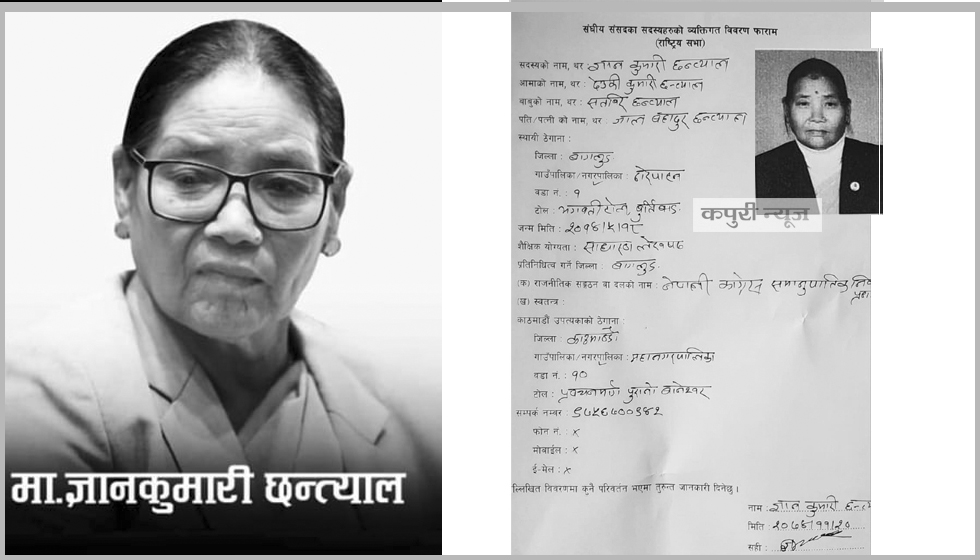 मा.ज्ञानकुमारी छन्त्याल
संघीय संसदका सदस्यहरुको व्यक्तिगत विवरण फाराम
(राष्ट्रिय सभा)
सदस्यको नाम, थर : ज्ञान कुमारी छन्त्याल
आमाको नाम, थर : देउकी कुमारी छन्त्याल
बाबुको नाम, थर : सतविर छन्त्याल
पति/पत्नी को नाम, थर : जात बहादुर छन्त्याल
स्थायी ठेगाना :
जिल्ला : बागलुङ
गाउँपालिका/नगरपालिका : ढोरपाटन
वडा नं. : १
टोल :
कपुरी न्यूज
जन्म मिति :
शैक्षिक योग्यता : साधारण लेखपढ
प्रतिनिधित्व गर्ने जिल्ला : बागलुङ
(क) राजनीतिक सङ्गठन वा दलको नाम : नेपाली काग्रेस समानुपातिक
(ख) स्वतन्त्र :
काठमाडौं उपत्यकाको ठेगाना :
जिल्ला : काठमाडौं
गाउँपालिका/नगरपालिका : महानगरपालिका
वडा नं. : १०
टोल : पुरानो बानेश्वर
सम्पर्क नम्बर :
फोन नं. : x
मोबाईल : x
ई-मेल : x
ल्लिखित विवरणमा कुनै परिवर्तन भएमा तुरुन्त जानकारी दिनेछु ।
नाम : ज्ञान कुमारी छन्त्या
मिति :
सही :